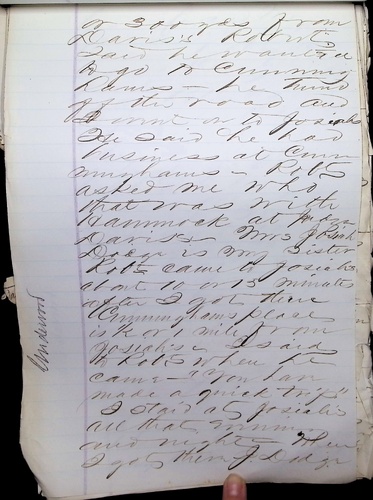 or 300 yds from
Davis's Robert
said he wanted
to go to Cunning
hams - he turned
off the road and
I went on to Josiah's
He said he had
business at Cun
ninghams - Robt
asked me who
that was with
Hammock at Judge
Davis's - Mrs Josiah
Dodge is my Sister
Robt came to Josiah's
about 10 or 15 minutes
after I got there
Cunninghams place
is ¾ or 1 mile from
Josiahs - I said
to Robt when he
came - "You have
made a quick trip"
I staid at Josiah's
all that evening
and night - When
I got there J Dodge
Underwood